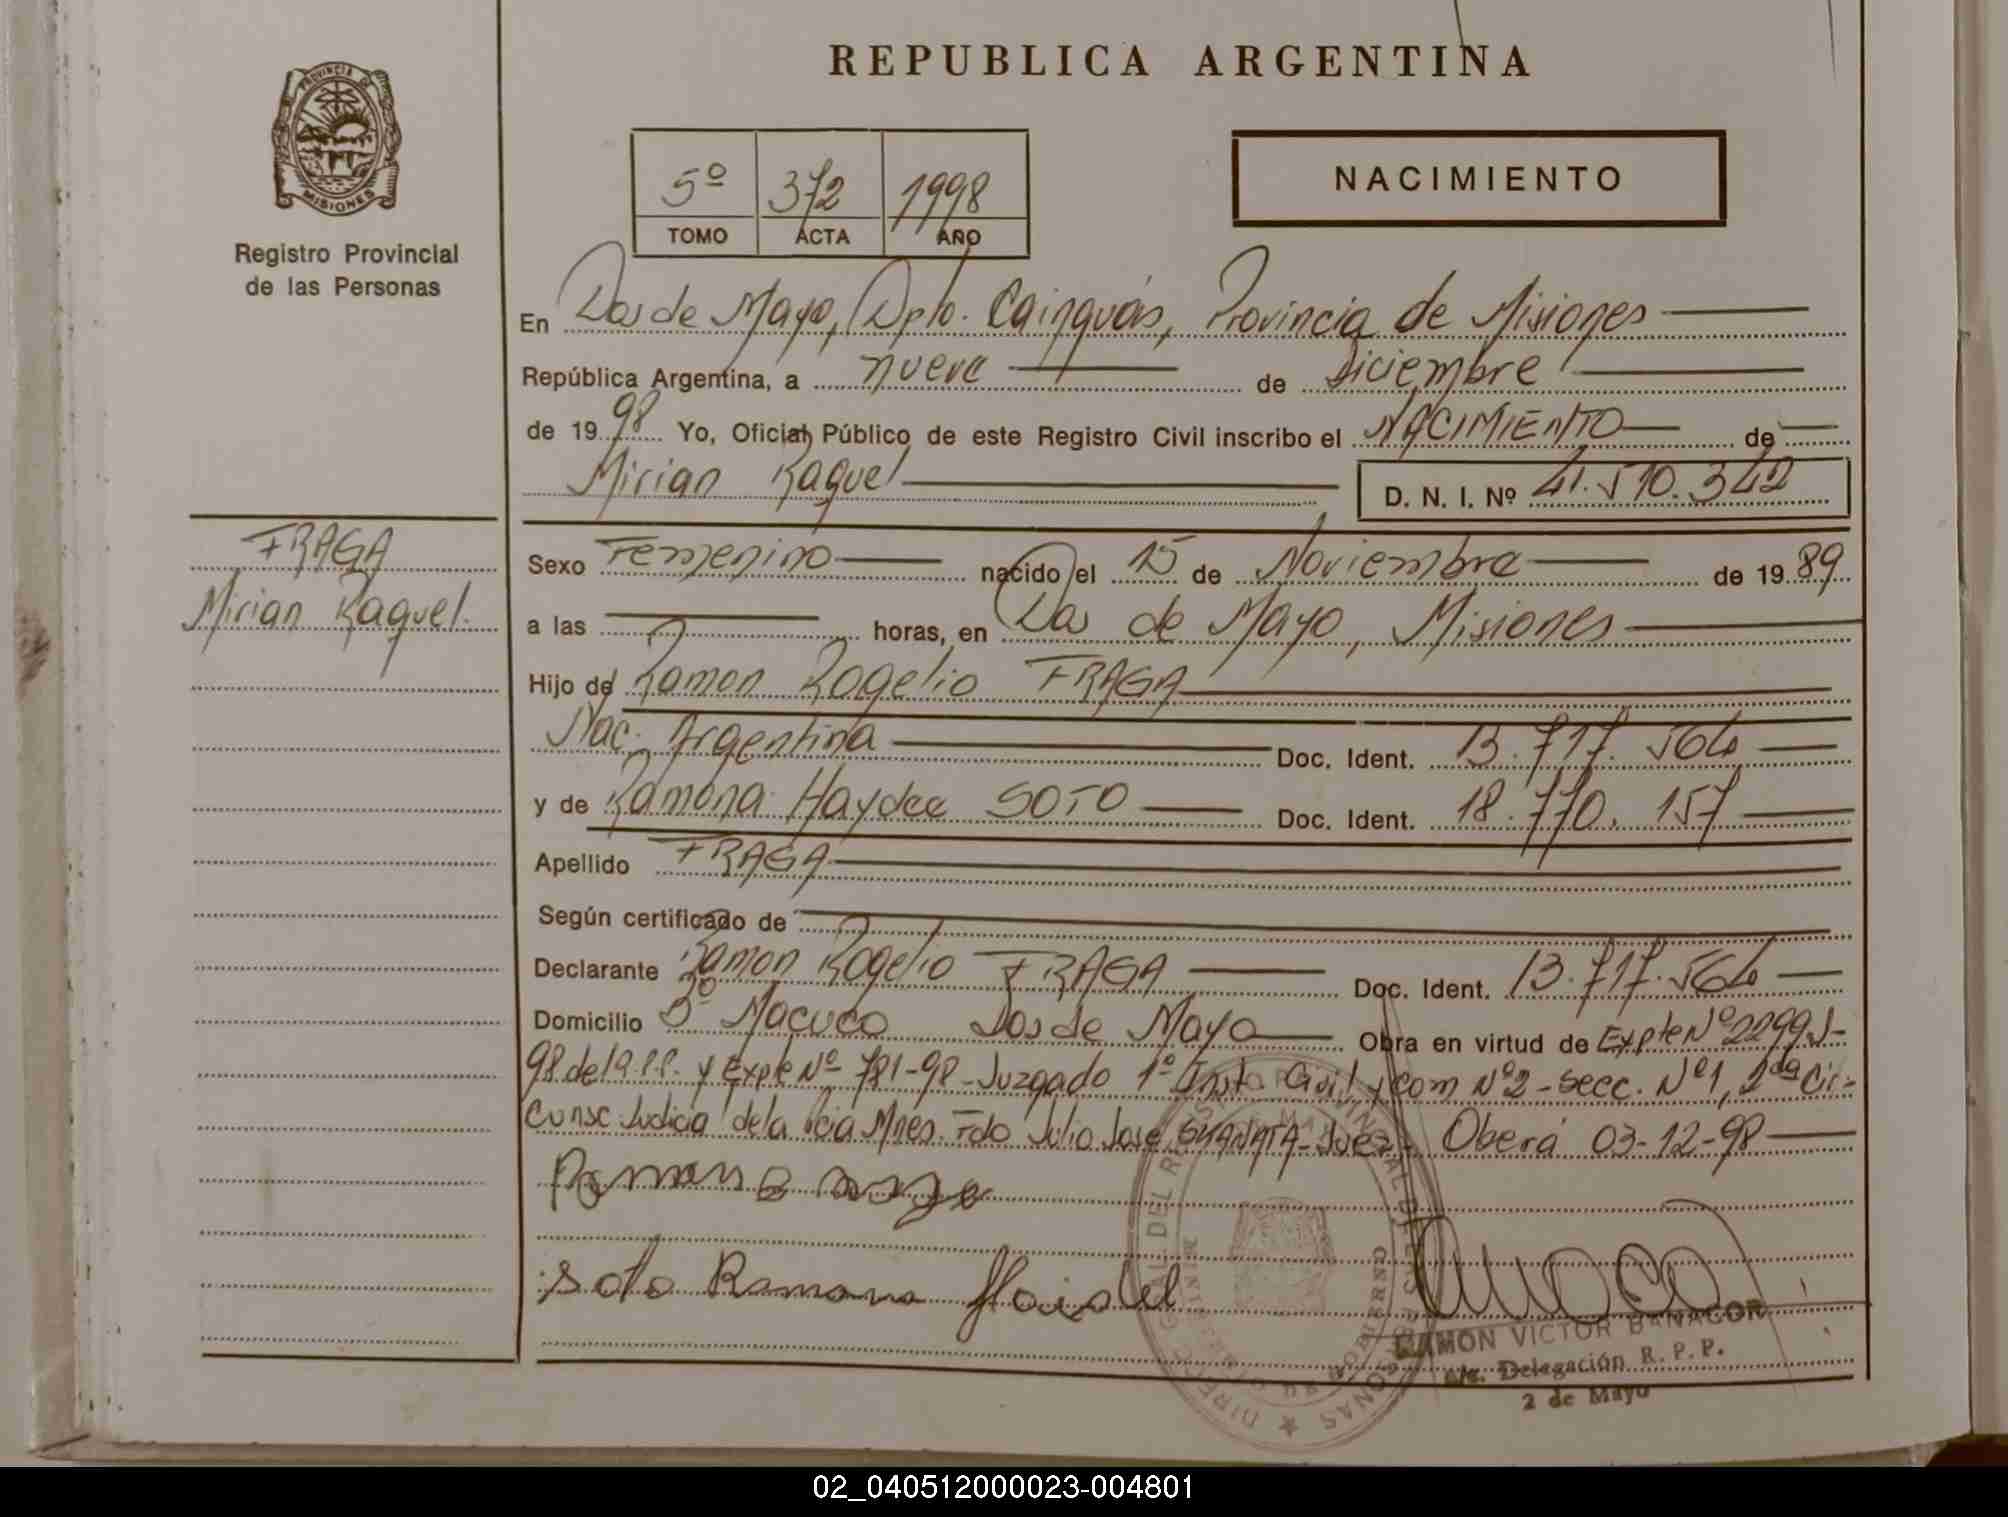 REPUBLICA ARGENTINA
PROVINCIA DE
MISIONES
Registro Provincial
de las Personas
5º 372 1998
TOMO ACTA AÑO
NACIMIENTO
En Dos de Mayo, Dpto. Cainguás, Provincia de Misiones
República Argentina, a nueve de Diciembre
de 1998 Yo, Oficial Público de este Registro Civil inscribo el NACIMIENTO de
Mirian Raquel D. N. I. Nº 41.510.342
FRAGA
Mirian Raquel.
Sexo Femenino nacido el 15 de Noviembre de 1989
a las horas, en Dos de Mayo, Misiones
Hijo de Ramon Rogelio FRAGA
Nac. Argentina Doc. Ident. 13.717.564
y de Ramona Haydee SOTO Doc. Ident. 18.770.157
Apellido FRAGA
Según certificado de
Declarante Ramon Rogelio FRAGA Doc. Ident. 13.717.564
Domicilio Bº Macuco Dos de Mayo Obra en virtud de Expte Nº 2299
98 de y Expte Nº 781-98 - Juzgado 1º Inst. Civil y Com Nº2 - Secc. Nº1, 2da Cir-
cunsc Judicial de la Mnes. Fdo Julio José Juez - Oberá 03-12-98
Soto Ramona
RAMON VICTOR BANACOR
a/c. Delegación R. P. P.
2 de Mayo
02_040512000023-004801